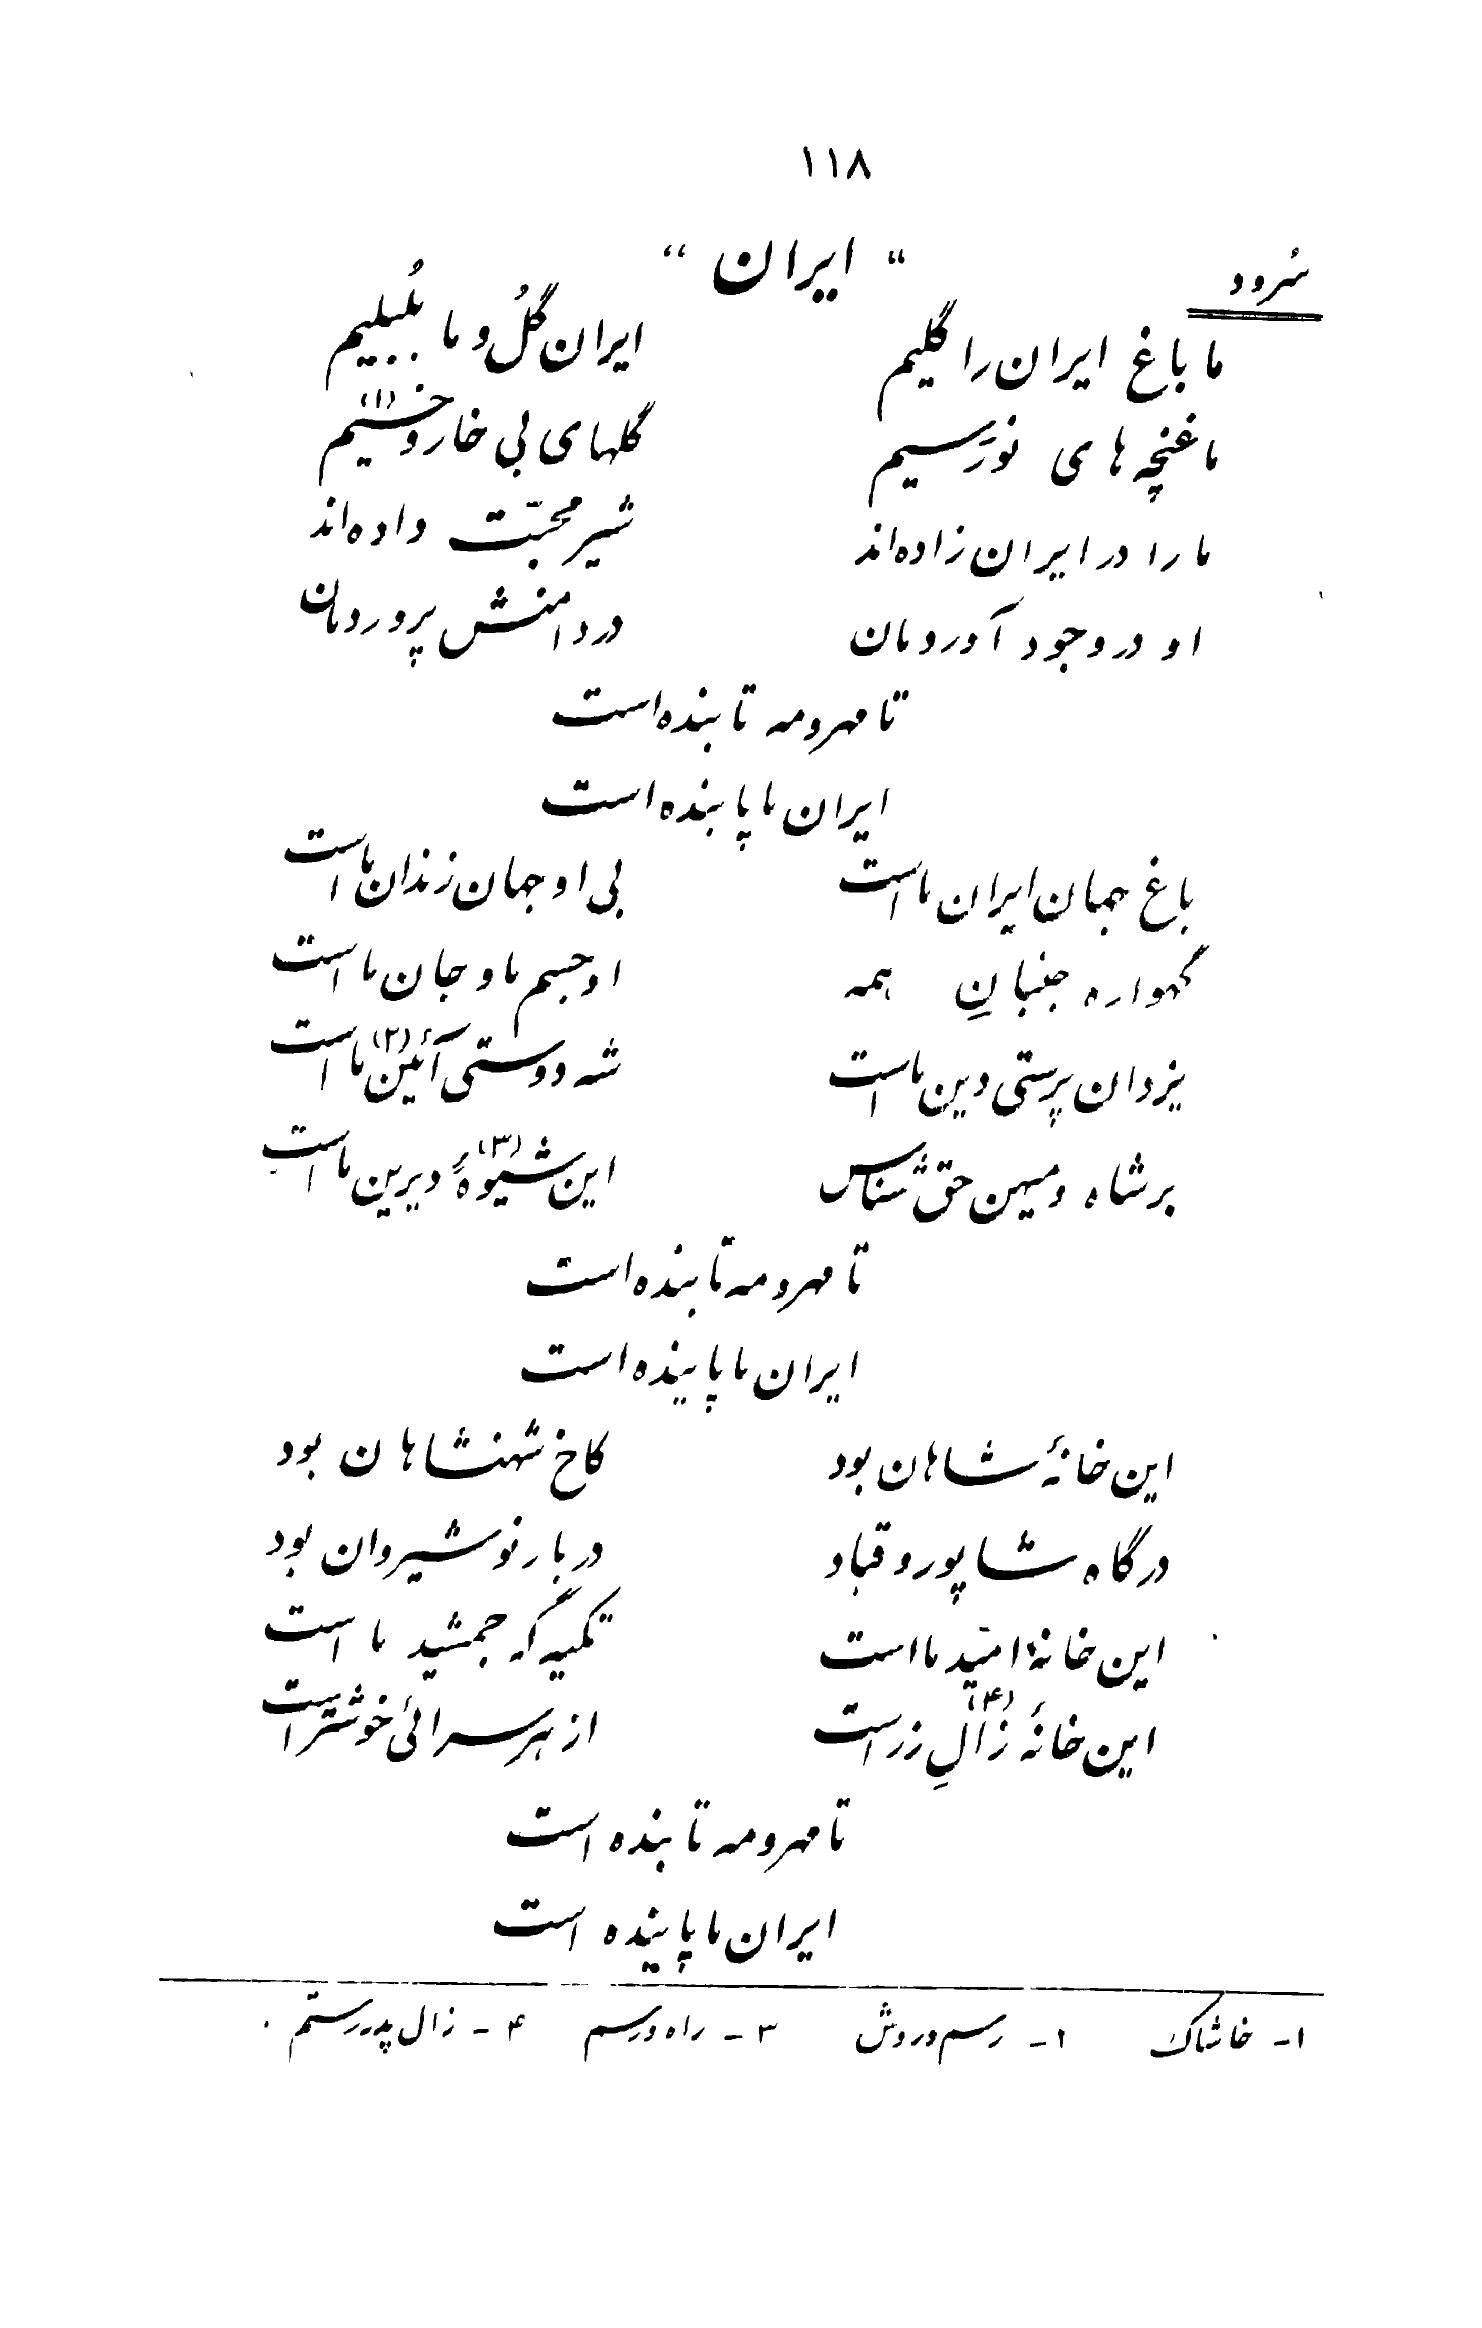 ۱۱۸
سُرود
" ایران "
ما باغ ایران را گلیم    ایران گلُ و ما بُلبلیم
ما غنچه‌های نورَسیم    گلهای بی خار و خسیم (۱)
ما را در ایران زاده‌اند    شیر محبّت داده‌اند
او در وجود آوردمان    در دامنش پروردمان
تا مهر و مه تابنده است
ایران ما پاینده است
باغ جهان ایران ما است    بی او جهان زندان ما است
گهواره جنبانِ همه    او جسم ما و جان ما است
یزدان پرستی دین ما است    شه دوستی آئین (۲) ما است
بر شاه و میهن حق شناس    این شیوهٔ (۳) دیرین ما است
تا مهر و مه تابنده است
ایران ما پاینده است
این خانهٔ شاهان بود    کاخ شهنشاهان بود
درگاه شاپور و قباد    دربار نوشیروان بود
این خانهٔ امیّد ما است    تکیه گه جمشید ما است
این خانهٔ زالِ (۴) زر است    از هر سرائی خوشتر است
تا مهر و مه تابنده است
ایران ما پاینده است
۱- خاشاک    ۱- رسم و روش    ۳- راه و رسم    ۴- زال پدر رستم .